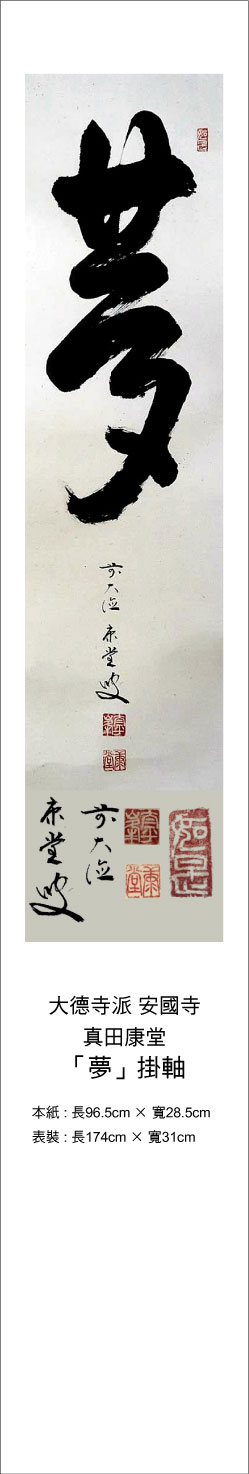 夢
前大德 康堂叟
康堂
如是
前大德
康堂叟
康堂
如是
大德寺派 安國寺
真田康堂
「夢」掛軸
本紙 : 長96.5cm × 寬28.5cm
表裝 : 長174cm × 寬31cm